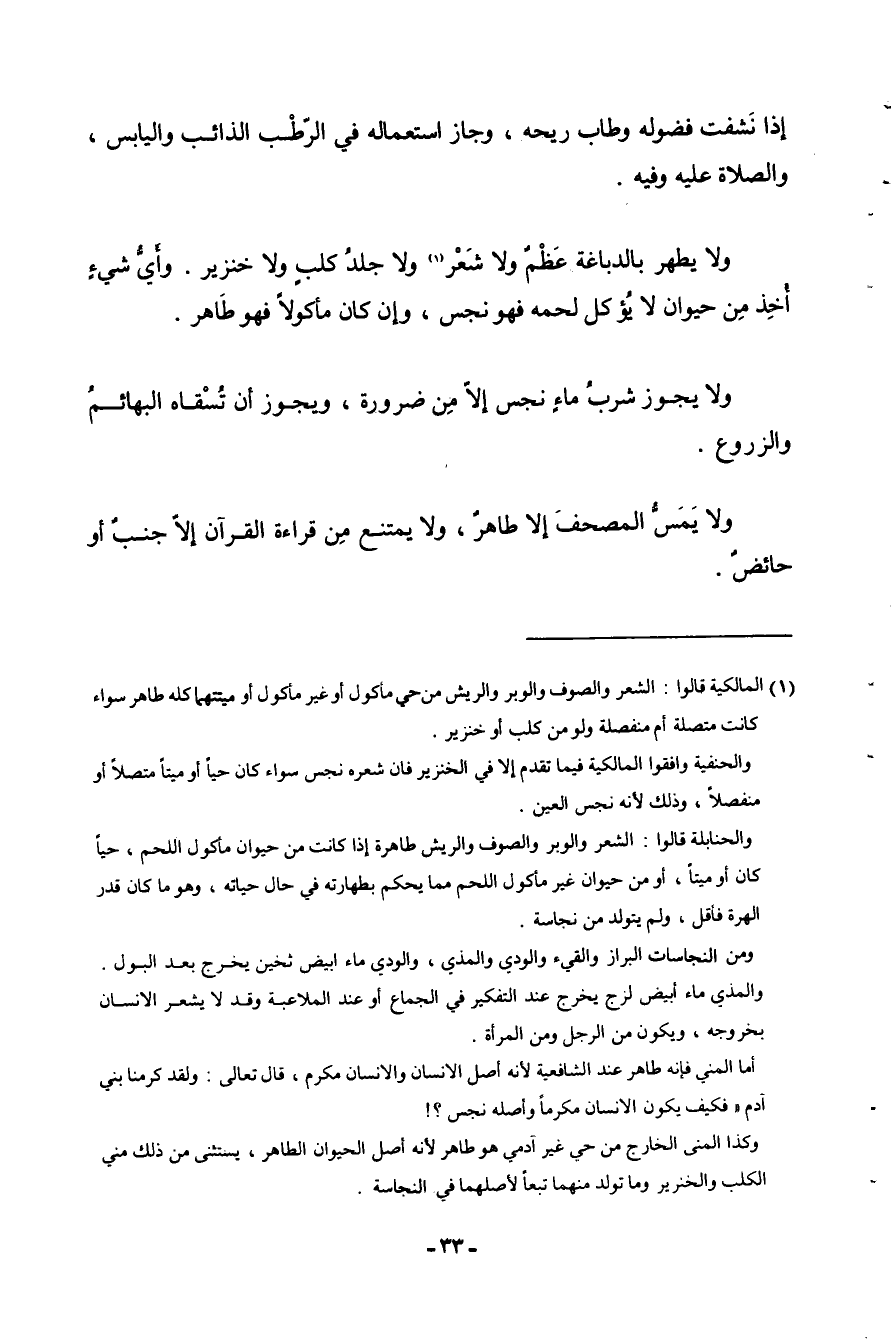 إذا نَشفت فضوله وطاب ريحه ، وجاز استعماله في الرّطْب الذائب واليابس ،
والصلاة عليه وفيه .
ولا يطهر بالدباغة عَظْمٌ ولا شَعَرْ (١) ولا جلدُ كلبٍ ولا خنزير . وأَيُّ شيءٍ
أُخِذ مِن حيوان لا يُؤكل لحمه فهو نجس ، وإن كان مأكولاً فهو طَاهر .
ولا يجوز شربُ ماءٍ نجس إلاّ مِن ضرورة ، ويجوز أن تُسْقاه البهائمُ
والزروع .
ولا يَمَسُّ المصحفَ إلا طاهرٌ ، ولا يمتنع مِن قراءة القرآن إلاّ جنبٌ أو
حائضٌ .
(١) المالكية قالوا : الشعر والصوف والوبر والريش من حي مأكول أو غير مأكول أو ميتتهما كله طاهر سواء
كانت متصلة أم منفصلة ولو من كلب أو خنزير .
والحنفية وافقوا المالكية فيما تقدم إلا في الخنزير فان شعره نجس سواء كان حياً أو ميتاً متصلاً أو
منفصلاً ، وذلك لأنه نجس العين .
والحنابلة قالوا : الشعر والوبر والصوف والريش طاهرة إذا كانت من حيوان مأكول اللحم ، حياً
كان أو ميتاً ، أو من حيوان غير مأكول اللحم مما يحكم بطهارته في حال حياته ، وهو ما كان قدر
الهرة فأقل ، ولم يتولد من نجاسة .
ومن النجاسات البراز والقيء والودي والمذي ، والودي ماء ابيض ثخين يخرج بعد البول .
والمذي ماء أبيض لزج يخرج عند التفكير في الجماع أو عند الملاعبة وقد لا يشعر الانسان
بخروجه ، ويكون من الرجل ومن المرأة .
أما المني فإنه طاهر عند الشافعية لأنه أصل الانسان والانسان مكرم ، قال تعالى : ولقد كرمنا بني
آدم « فكيف يكون الانسان مكرماً وأصله نجس ؟!
وكذا المنى الخارج من حي غير آدمي هو طاهر لأنه أصل الحيوان الطاهر ، يستثنى من ذلك مني
الكلب والخنرير وما تولد منهما تبعاً لأصلهما في النجاسة .
- ٣٣ -